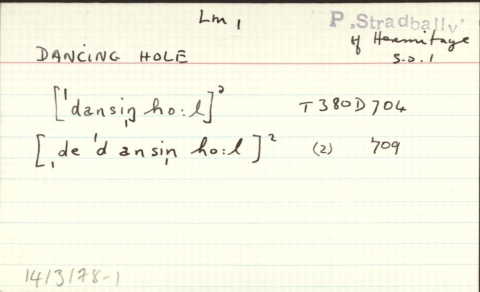 Lm 1
P. Stradbally
of Hermitage
S.D. 1
DANCING HOLE
[ˈdansiṇ ho:l]² T380D704
[ˌde ˈdansiṇ ho:l]² (2) 709
14/3/78-1